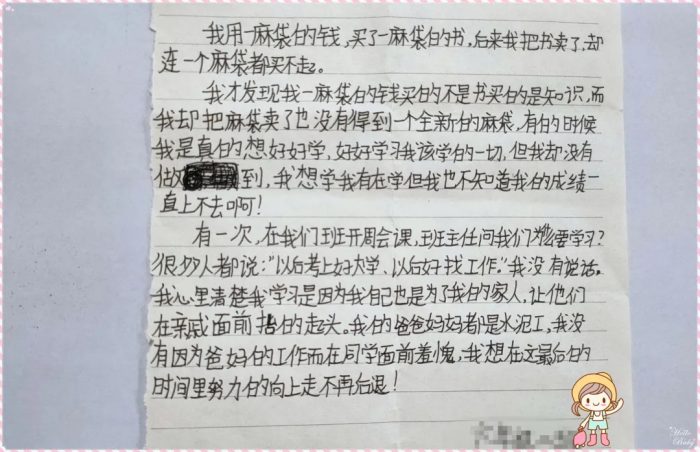 我用一麻袋的钱,买了一麻袋的书,后来我把书卖了,却
连一个麻袋都买不起。
我才发现我一麻袋的钱买的不是书买的是知识,而
我却把麻袋卖了也没有得到一个全新的麻袋,有的时候
我是真的想好好学,好好学习我该学的一切,但我却没有
做到,我想学我有在学但我也不知道我的成绩一
直上不去啊!
有一次,在我们班开周会课,班主任问我们为啥要学习?
很多人都说:"以后考上好大学,以后好找工作。"我没有说话。
我心里清楚我学习是因为我自己也是为了我的家人,让他们
在亲戚面前抬的起头。我的爸爸妈妈都是水泥工,我没
有因为爸妈的工作而在同学面前羞愧,我想在这最后的
时间里努力的向上走不再后退!
Hello
Baby